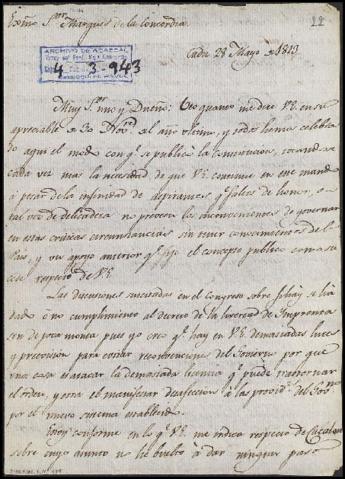 Exmo. Sor. Marques de la Concordia
22
Cadiz 28 Mayo de 1813
ARCHIVO DE ABASCAL
4 3 943
Muy Sor. mio y Dueño: Veo quanto me dice V.E. en su
apreciable de 30 Nov.e del año ultimo, y todos hemos celebra
do aqui el modo con q.e se publicó la Constitucion, tocando
cada vez mas la necesidad de que V.E. continue en ese mando
à pesar de la infinidad de aspirantes q.e faltos de honor, o
tal vez de delicadeza no procuran los inconvenientes de governar
en estas criticas circunstancias sin tener conocimientos del
Pais, y un apoyo anterior q.e fije el concepto publico como su
cede respecto de V.E.
Las discusiones suscitadas en el Congreso sobre si hay ò se há
dado ò no cumplimiento al decreto de la livertad de Imprenta
son de poca monta, pues yo creo q.e hay en V.E. demasiadas luces
y prevision para evitar reconvenciones del Govierno por que
una cosa es atacar la demasiada licencia q.e puede trastornar
el órden, y otra el manifestar desafeccion à las provid.s del
por el nuevo sistema establecido.
Estoy conforme en lo q.e V.E. me indica respecto de
sobre cuyo asunto no he buelto à dar ningun paso